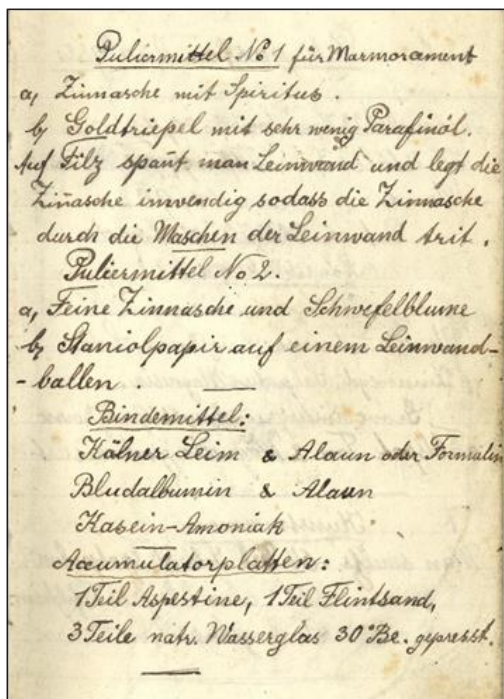 Puliermittel No 1 für Marmorament
a, Zinnasche mit Spiritus.
b, Goldtriepel mit sehr wenig Parafinöl.
Auf Filz spañt man Leinwand und legt die
Ziñasche inwendig sodass die Zinnasche
durch die Maschen der Leinwand trit.
Puliermittel No 2.
a, Feine Zinnasche und Schwefelblume
b, Staniolpapir auf einem Leinwand-
-ballen
Bindemittel:
Kölner Leim & Alaun oder Formalin
Bludalbumin & Alaun
Kasein-Amoniak
Accumulatorplatten:
1 Teil Aspestine, 1 Teil Flintsand,
3 Teile natr. Wasserglas 30°Be. gepresst.